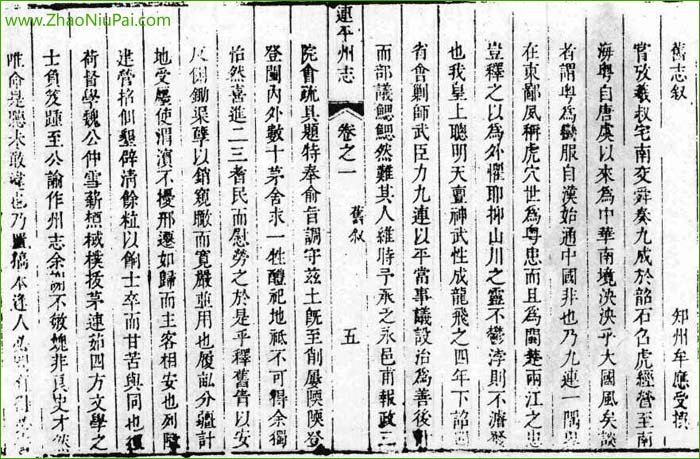 www.ZhaoNiuPai.com
舊志叙
知州牟應受撰
嘗攷羲叔宅南交舜奏九成於韶石召虎經營至南
海粤自唐虞以來為中華南境泱泱乎大國風矣談
者謂粤為蠻服自漢始通中國非也乃九連一隅
在東鄙夙稱虎穴世為粤患而且為閩楚兩江之
豈釋之以為外懼耶抑山川之靈不鬱浡則不
也我皇上聰明天亶神武性成龍飛之四年下詔
省會剿師武臣力九連以平當事議設治為善後
而部議鰓鰓然難其人維時予承乏永邑甫報政三
連平州志
卷之一
舊叙
五
院會疏具題特奉俞旨調守茲土既至削屢陾陾登
登闤內外數十茅舍求一牲醴祀地祗不可得余獨
怡然喜進二三耆民而慰勞之於是乎釋舊眚以安
反側鋤渠孽以銷窺覬而寬嚴並用也履畝分疆計
地受廛使渭濱不擾邢遷如歸而主客相安也列
建營格佃墾辟清餘粒以餉士卒而甘苦與同也
荷督學魏公仲雪薪槱棫樸拔茅連茹四方文學之
士負笈踵至公諭作州志余謝不敏媿非良史才然
唯命是聽未敢違也乃
稿本逢人